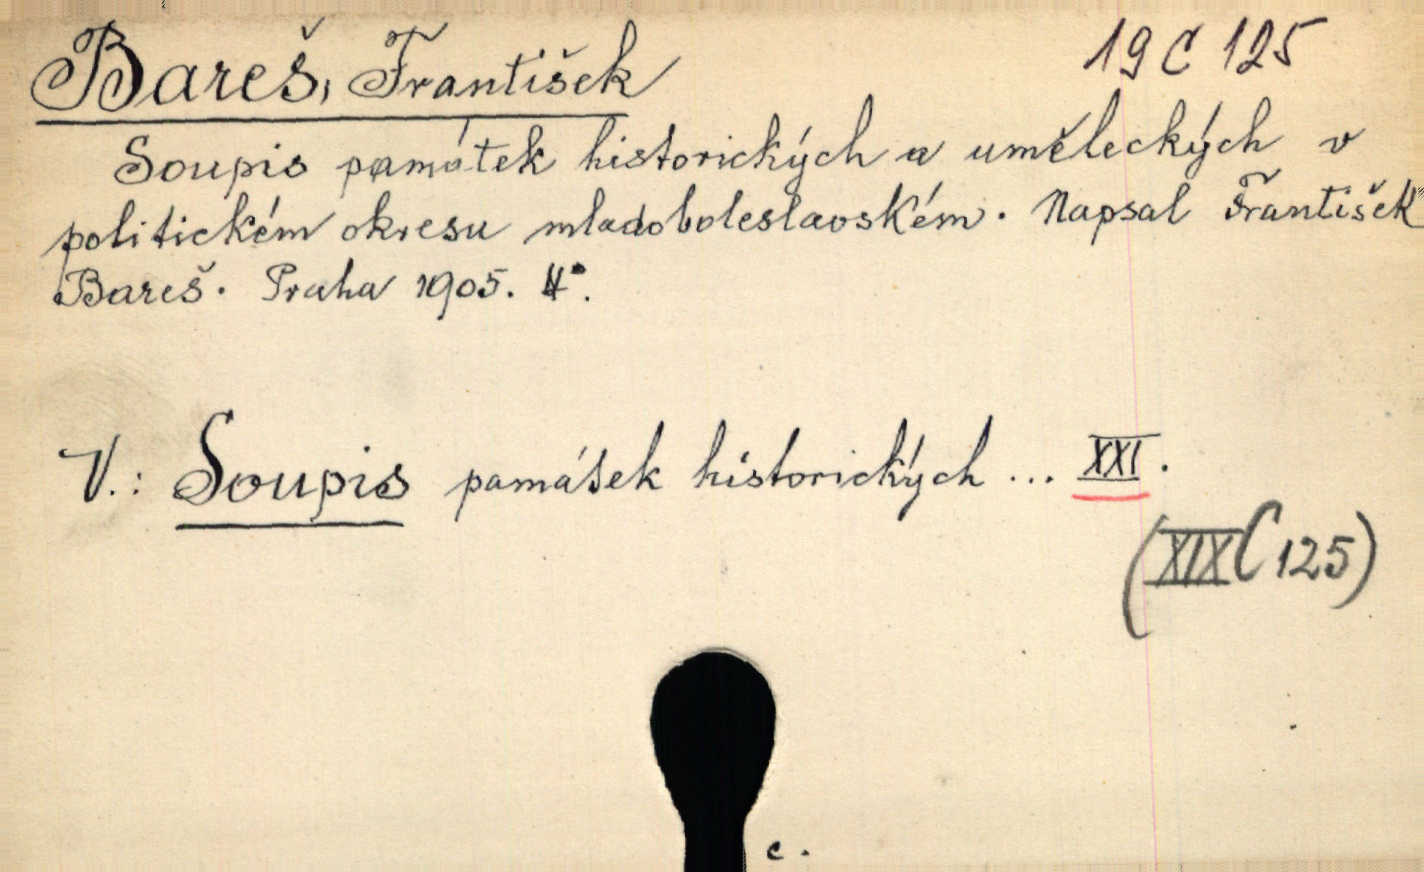 19 C 125
Bareš, František
Soupis památek historických a uměleckých v
politickém okresu mladoboleslavském. Napsal František
Bareš. Praha 1905. 4°.
V.: Soupis památek historických ... XXI.
(XIX C 125)
c.